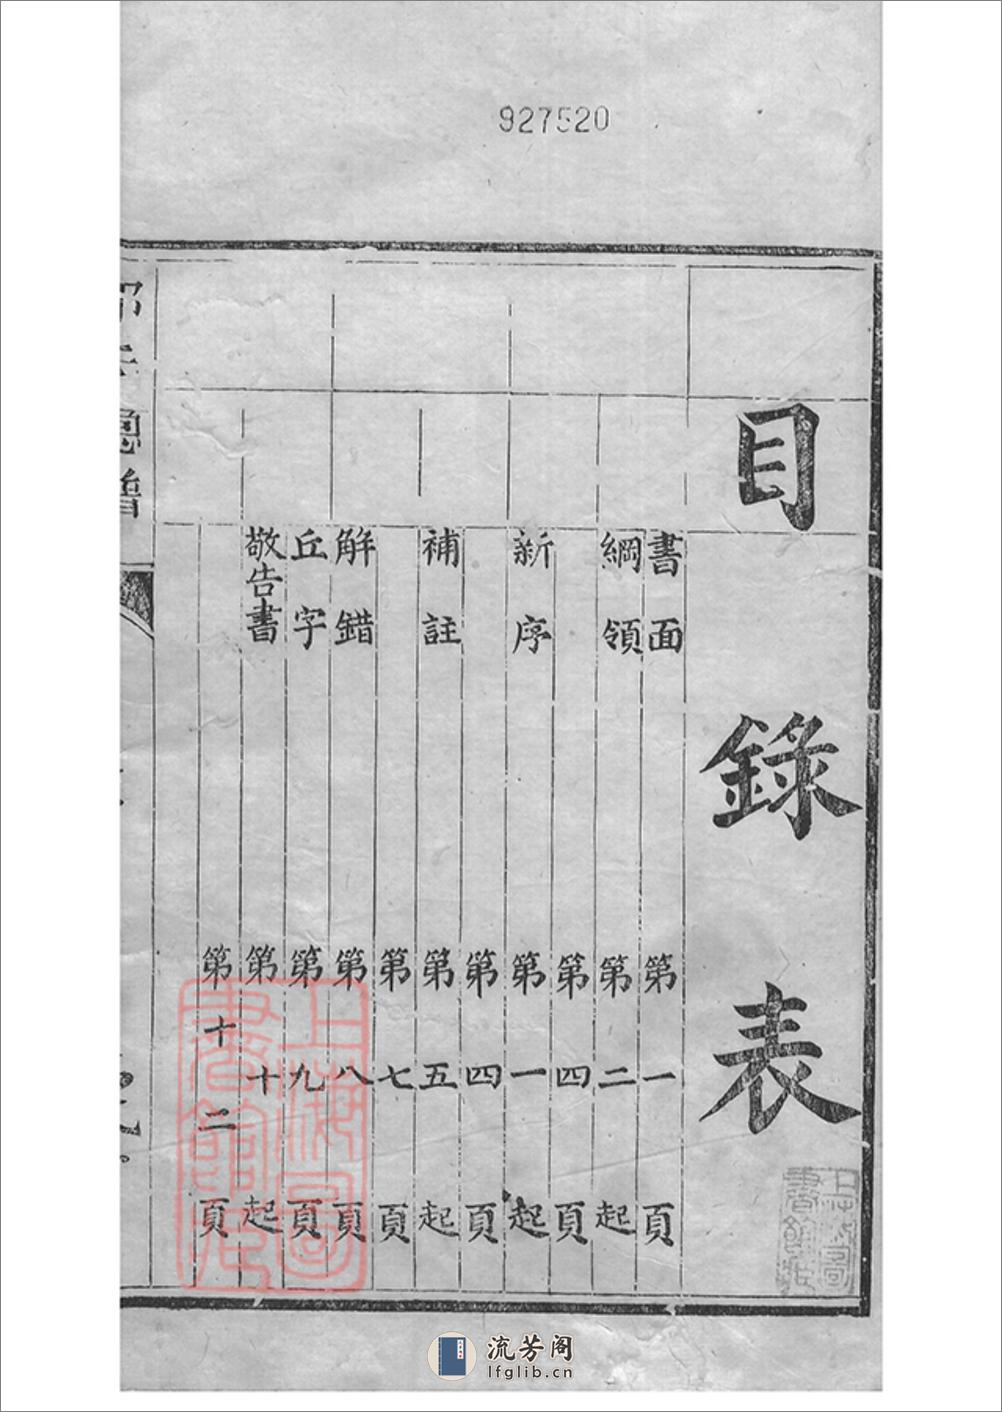 927520
目錄表
書面 第一頁
綱領 第二起
第四頁
新序 第一起
第四頁
補註 第五起
第七頁
解錯 第八頁
丘字 第九頁
敬告書 第十起
第十二頁
邱氏總譜
上海圖書館藏
上海圖書館藏
流芳阁
lfglib.cn